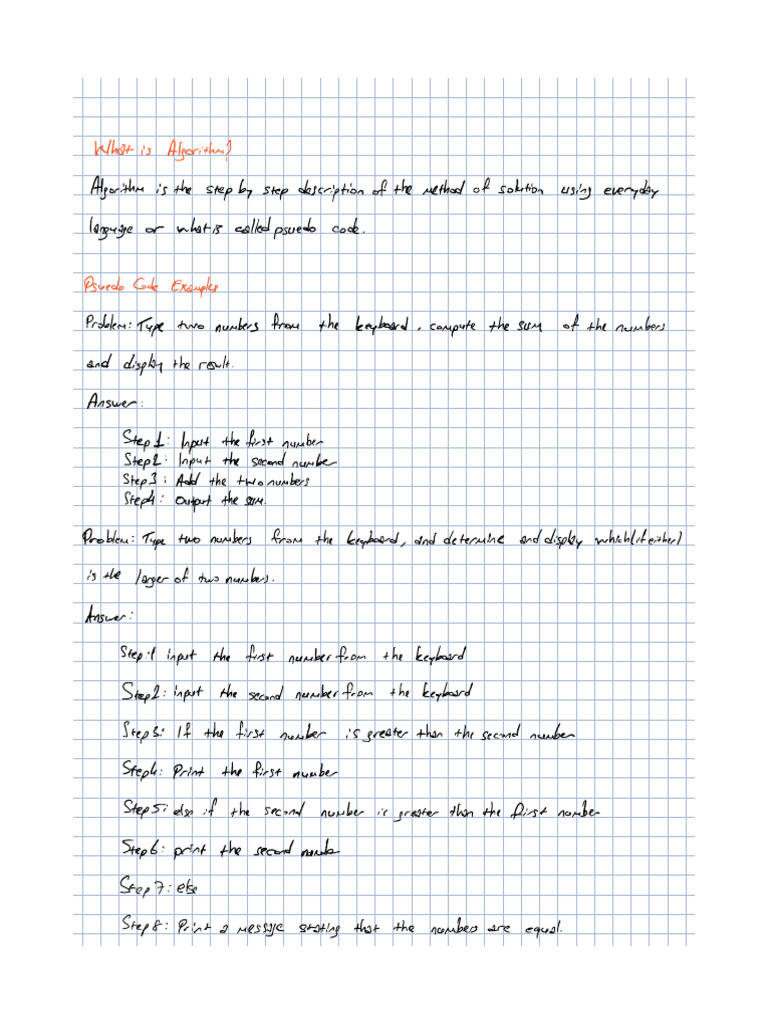 What is Algorithm?
Algorithm is the step by step description of the method of solution using everyday
language or what is called psuedo code.
Psuedo Code Examples
Problem: Type two numbers from the keyboard, compute the sum of the numbers
and display the result.
Answer:
Step 1: Input the first number
Step 2: Input the second number
Step 3: Add the two numbers
Step 4: Output the sum.
Problem: Type two numbers from the keyboard, and determine and display which (if either)
is the larger of two numbers.
Answer:
Step:1 input the first number from the keyboard
Step 2: input the second number from the keyboard
Step 3: If the first number is greater than the second number
Step 4: Print the first number
Step 5: else if the second number is greater than the first number
Step 6: print the second numbe
Step 7: else
Step 8: Print a message stating that the numbers are equal.